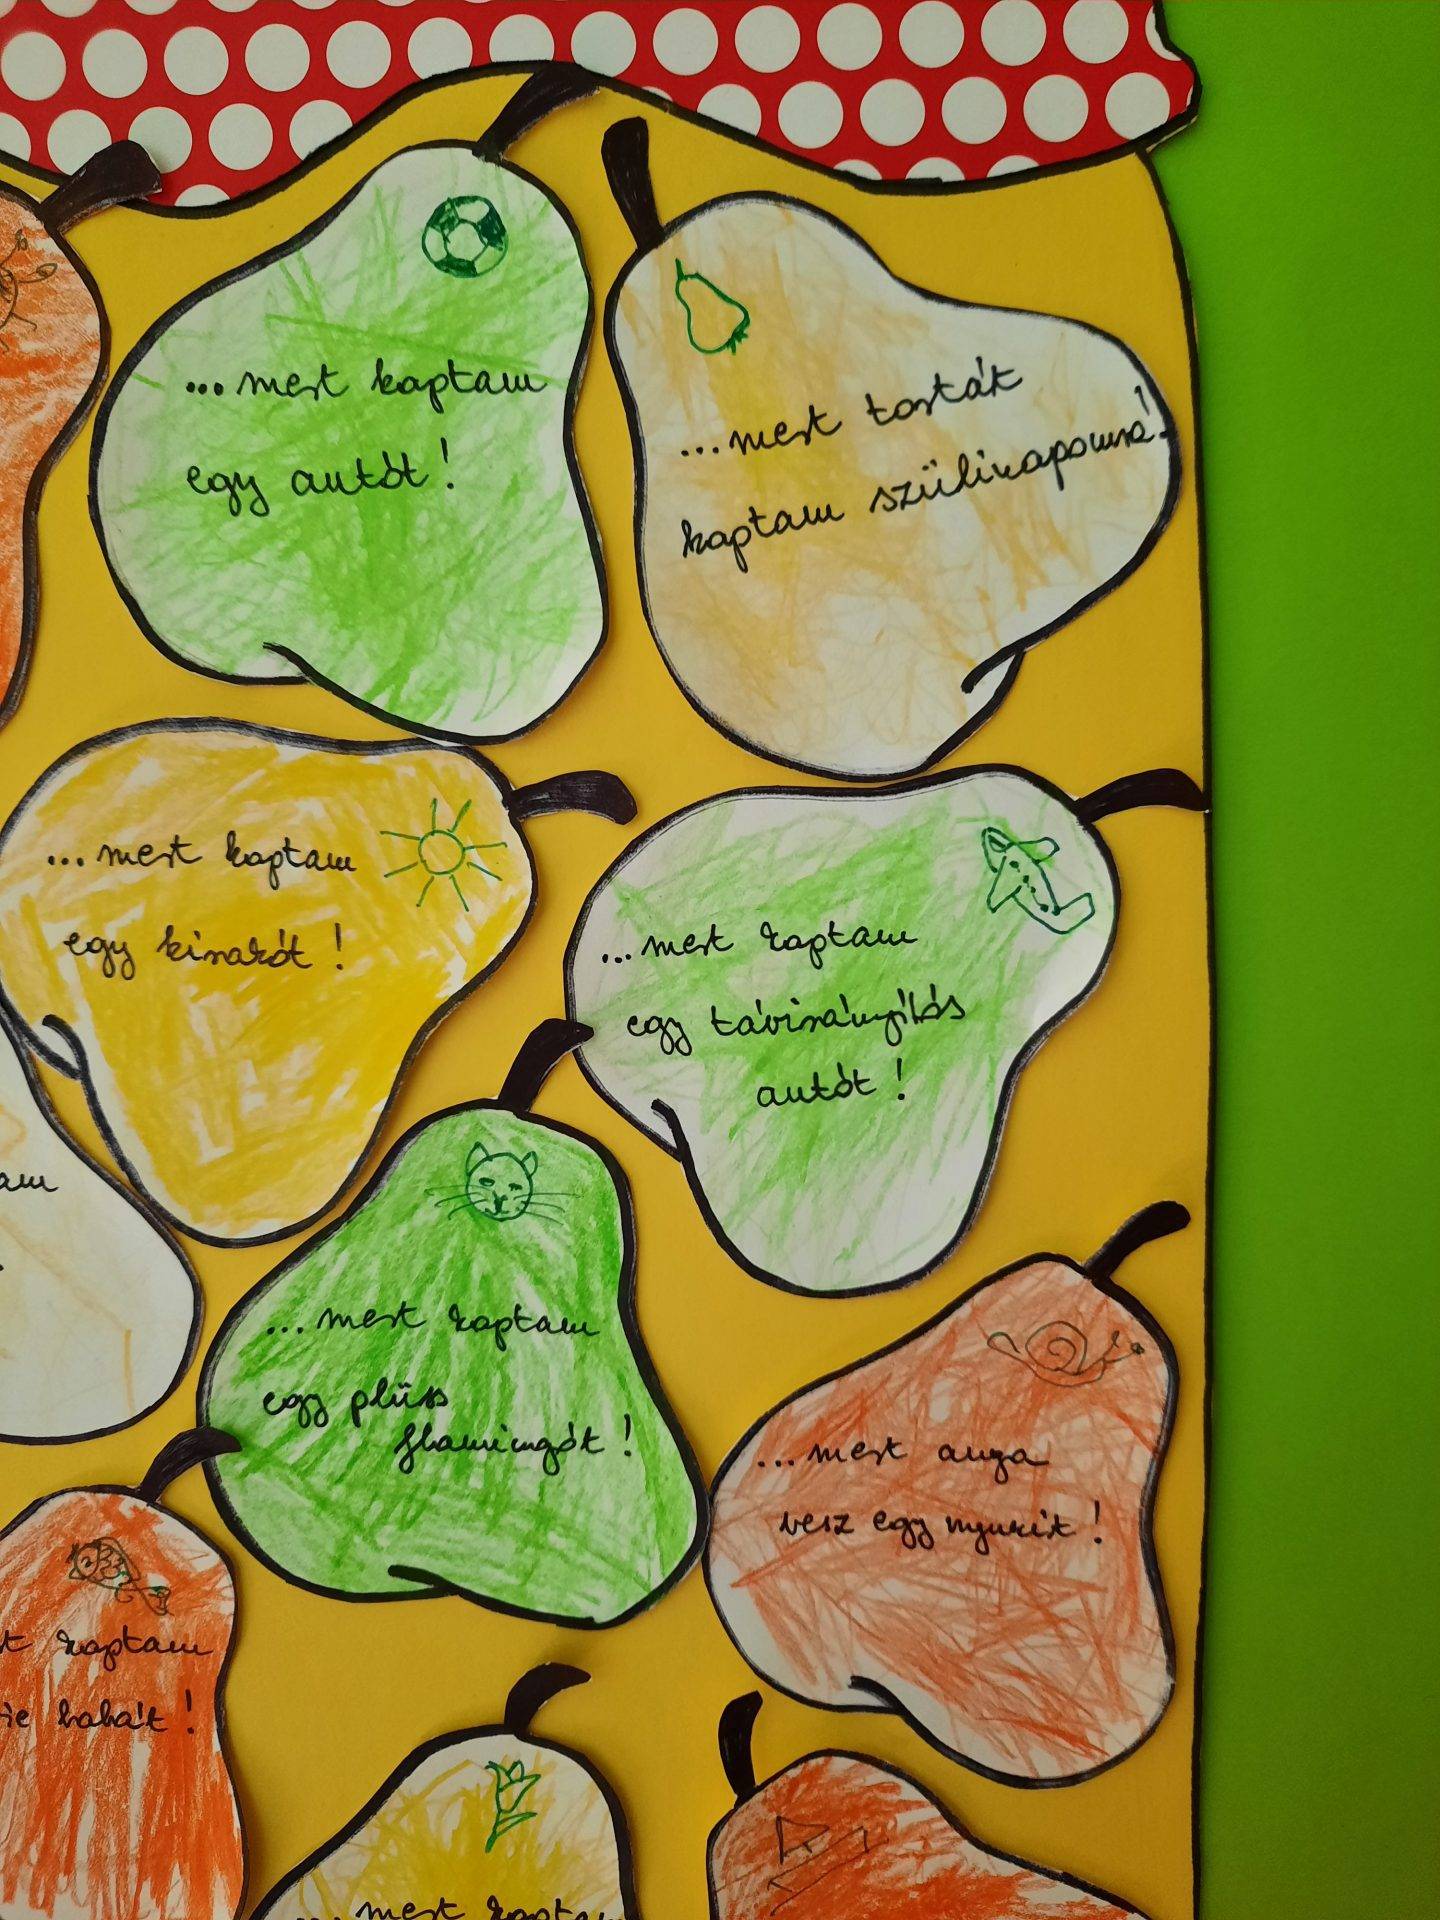 ...mert kaptam
egy autót!
...mert tortát
kaptam szülinapomra!
...mert kaptam
egy kisautót!
...mert kaptam
egy távirányítós
autót!
...mert kaptam
egy plüss
flamingót!
...mert anya
vesz egy nyuszit!
kaptam
babát!
...mert kaptam